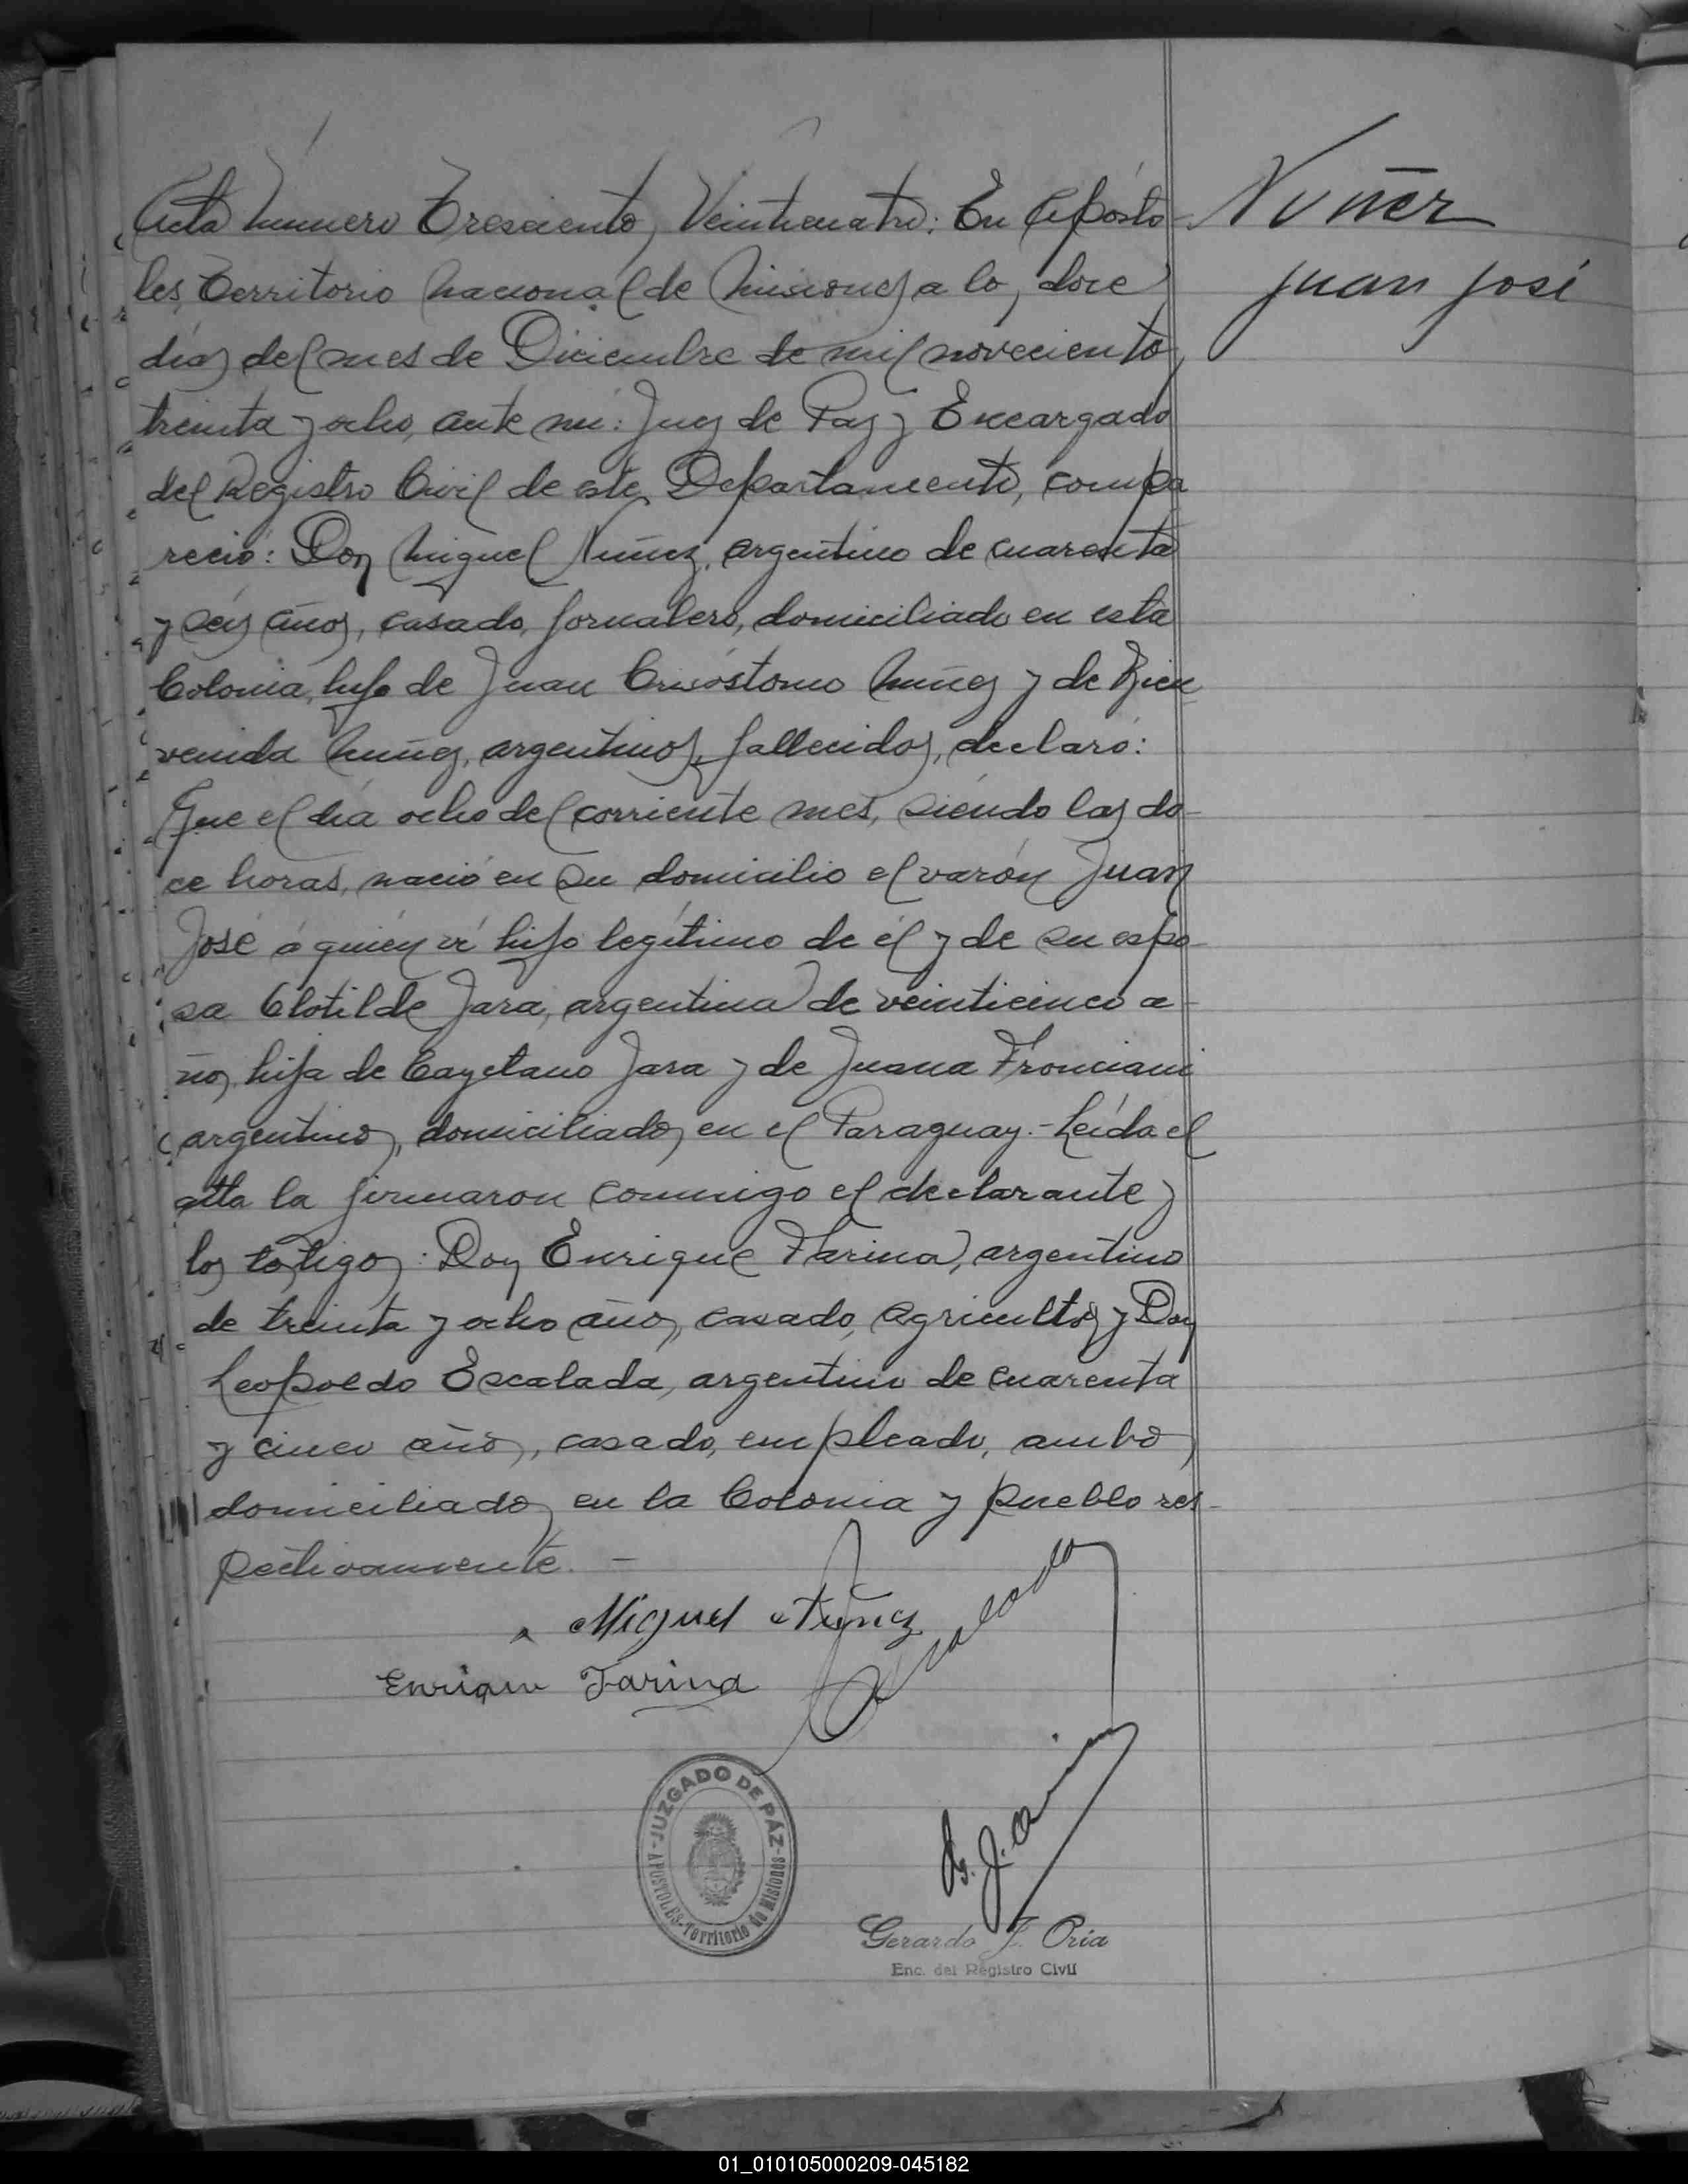 Acta número Tresciento, Veinticuatro: En Apósto-
les, Territorio Nacional de Misiones, a los doce
días del mes de Diciembre de mil novecientos
treinta y ocho, ante mí: Juez de Paz y Encargado
del Registro Civil de este Departamento, compa
reció: Don Miguel Nuñez, argentino de cuarenta
y seis años, casado, jornalero, domiciliado en esta
Colonia, hijo de Juan Crisóstomo Nuñez y de Bien
venida Nuñez, argentinos, fallecidos, declaró:
Que el día ocho del corriente mes, siendo las do-
ce horas, nació en su domicilio el varón Juan
José á quién ví hijo legítimo de él y de su espo-
sa Clotilde Jara, argentina de veinticinco a-
ños, hija de Cayetano Jara y de Juana Fronciani
argentinos, domiciliados en el Paraguay.- Leída el
acta la firmaron conmigo el declarante y
los testigos: Don Enrique Farina, argentino
de treinta y ocho años, casado, agricultor y Don
Leopoldo Escalada, argentino de cuarenta
y cinco años, casado, empleado, ambos
domiciliados en la Colonia y pueblo res-
pectivamente. -
Nuñez
Juan José
Miguel Nuñez
Escalada
Enrique Farina
JUZGADO DE PAZ
APOSTOLES - Territorio de Misiones
G. J. Oria
Gerardo J. Oria
Enc. del Registro Civil
01_010105000209-045182